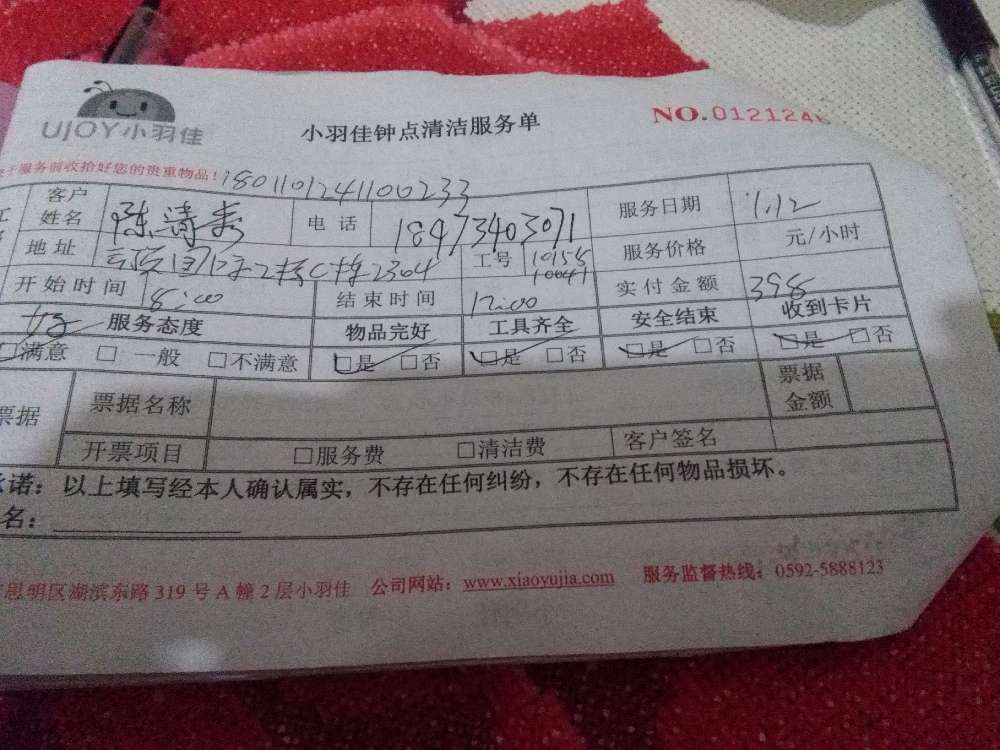 UJOY小羽佳
小羽佳钟点清洁服务单
NO.012124
于服务前收拾好您的贵重物品!
1801101241100233
客户姓名 陈清秀 电话 18473403071 服务日期 1.12
地址 2栋C梯2304 工号 10155 10041 服务价格 元/小时
开始时间 8:00 结束时间 12:00 实付金额 398
服务态度 物品完好 工具齐全 安全结束 收到卡片
□满意 □一般 □不满意 □是 □否 □是 □否 □是 □否 □是 □否
票据 票据名称 票据金额
开票项目 □服务费 □清洁费 客户签名
诺:以上填写经本人确认属实,不存在任何纠纷,不存在任何物品损坏。
名:
思明区湖滨东路319号A幢2层小羽佳 公司网站:www.xiaoyujia.com 服务监督热线:0592-5888123